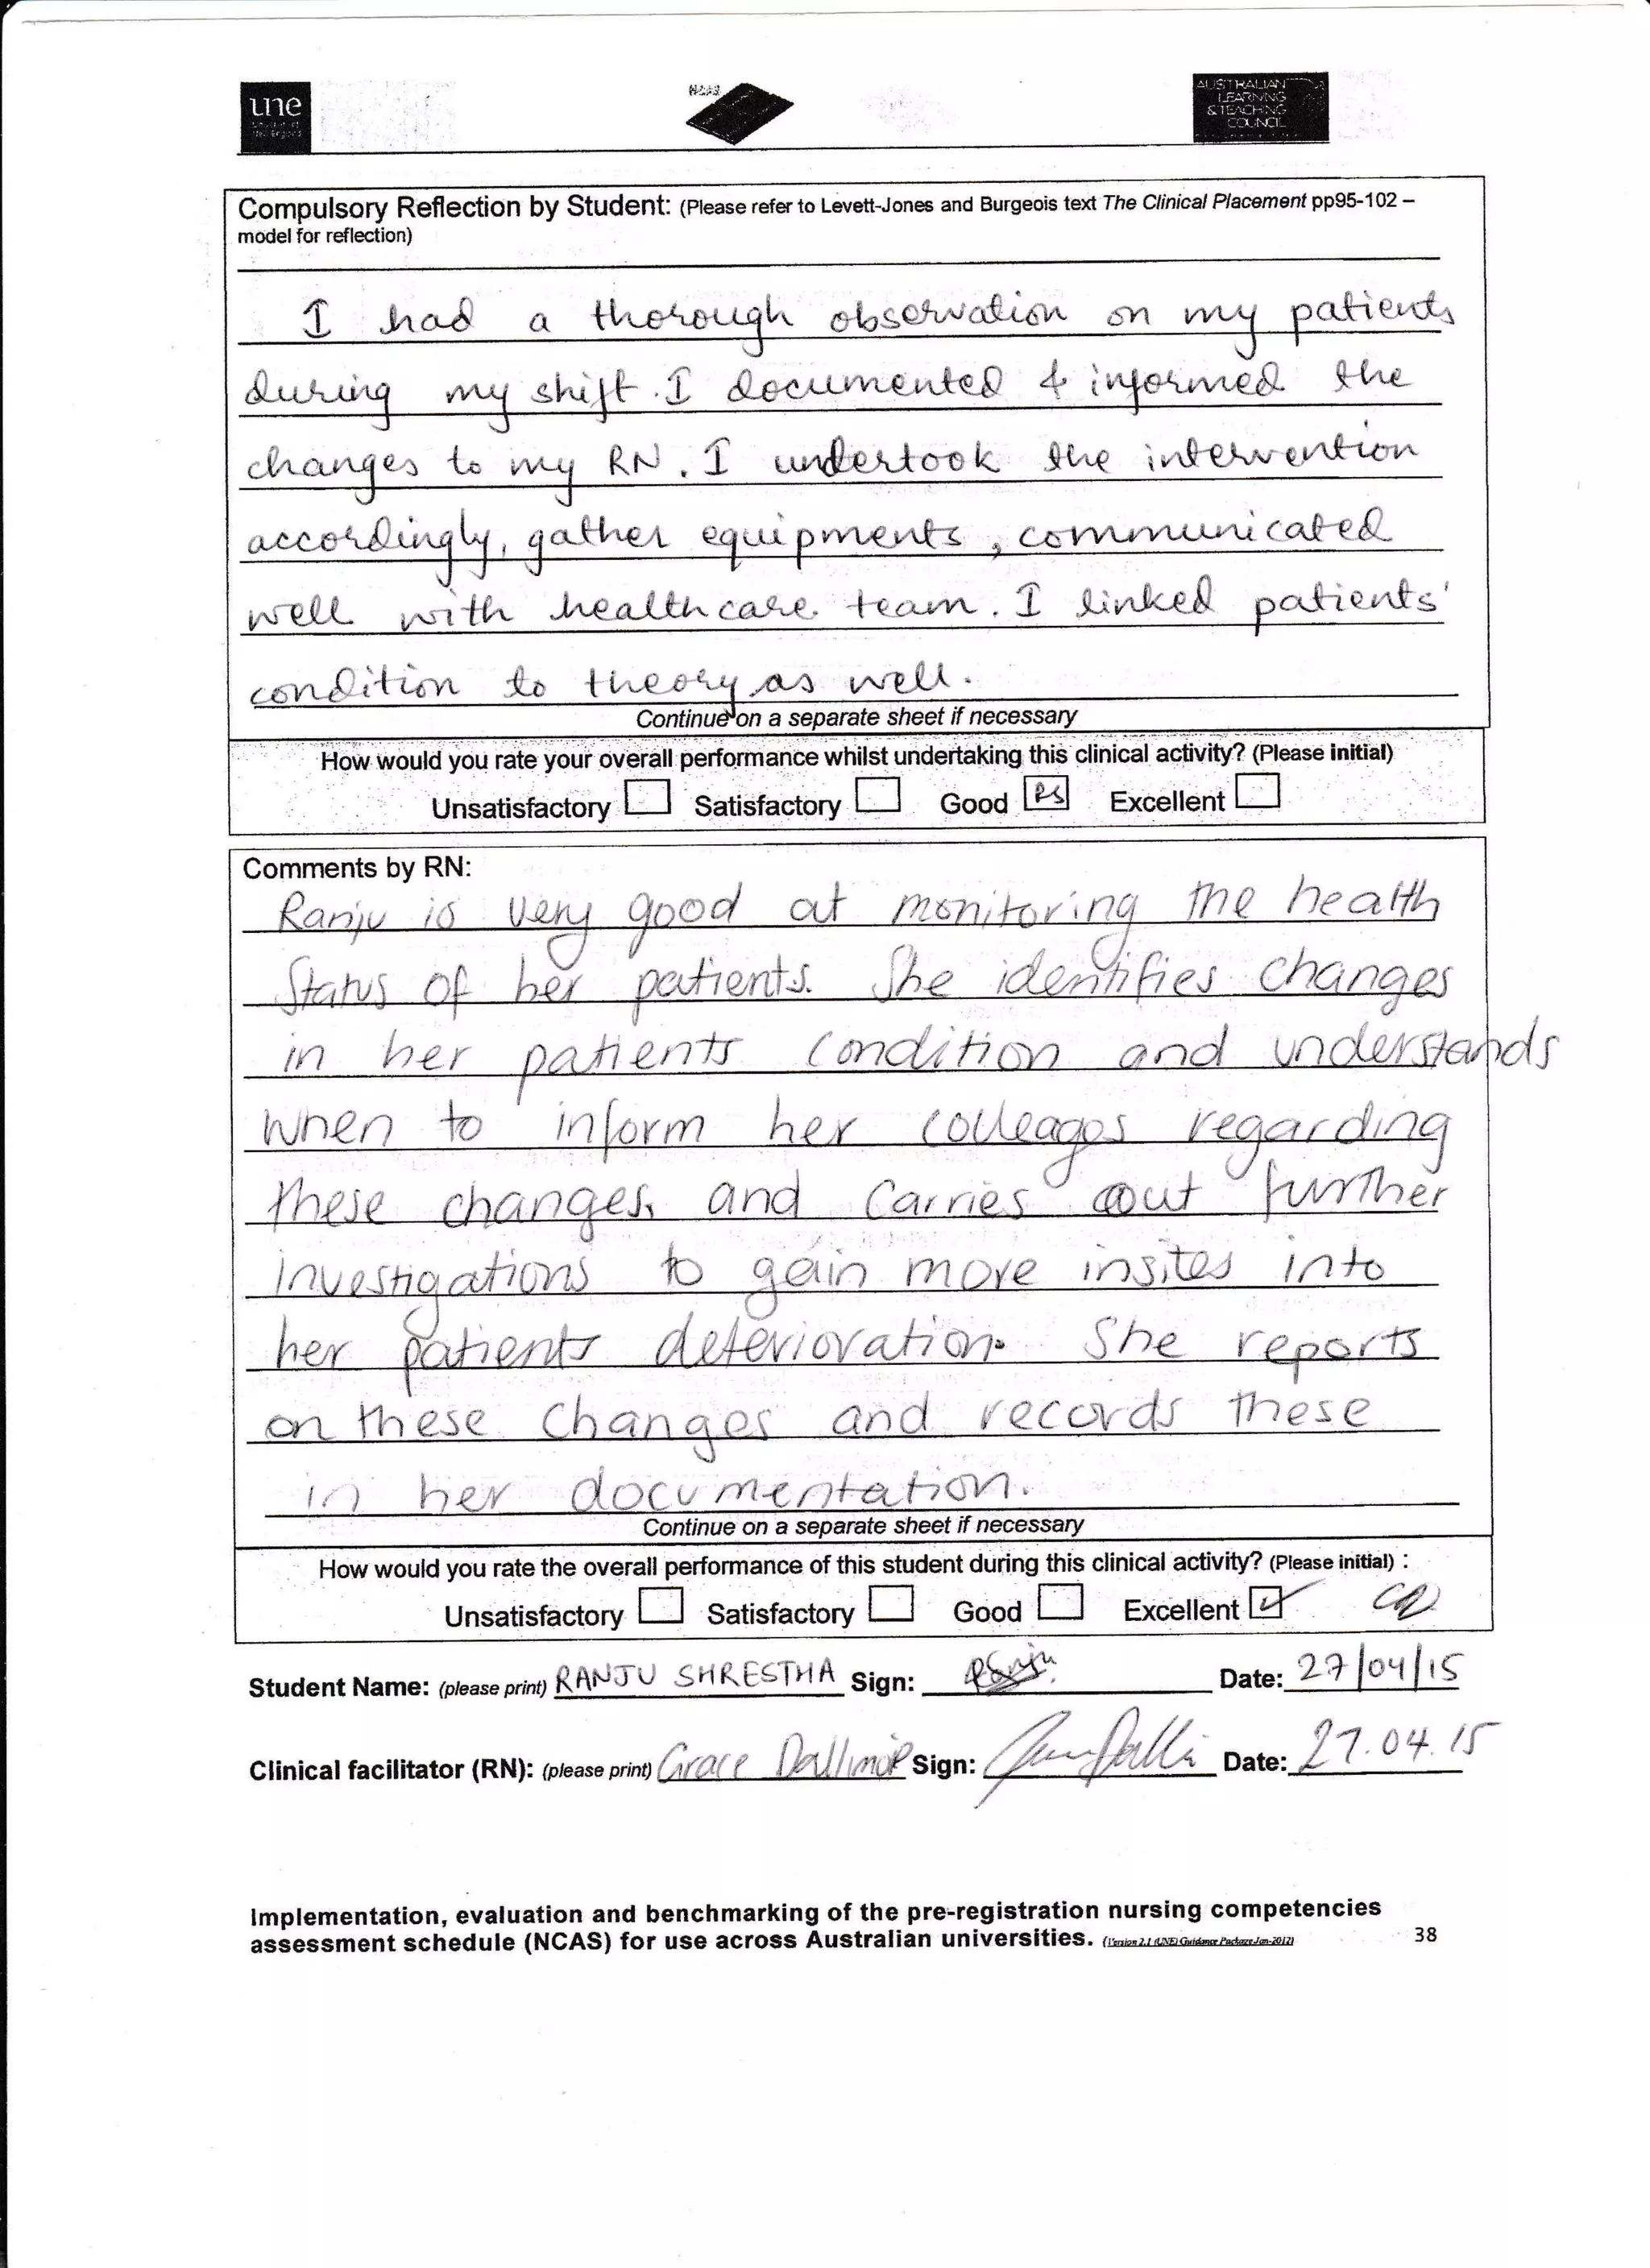 une
University of
New England
NCAS
AUSTRALIAN
LEARNING
& TEACHING
COUNCIL
Compulsory Reflection by Student: (Please refer to Levett-Jones and Burgeois text The Clinical Placement pp95-102 –
model for reflection)
I had a thorough observation on my patients
during my shift. I documented & informed the
changes to my RN. I undertook the intervention
accordingly, gather equipments, communicated
well with healthcare team. I linked patients'
condition to theory as well.
Continue on a separate sheet if necessary
How would you rate your overall performance whilst undertaking this clinical activity? (Please initial)
Unsatisfactory Satisfactory Good RS Excellent
Comments by RN:
Ranju is very good at monitoring the health
Status of her patients. She identifies changes
in her patients condition and understands
when to inform her colleages regarding
these changes, and carries out further
investigations to gain more insites into
her patients deterioration. She reports
on these changes and records these
in her documentation.
Continue on a separate sheet if necessary
How would you rate the overall performance of this student during this clinical activity? (Please initial) :
Unsatisfactory Satisfactory Good Excellent ✓ GD
Student Name: (please print) RANJU SHRESTHA Sign: Date: 27/04/15
Clinical facilitator (RN): (please print) Grace Dallimore Sign: Date: 27.04.15
Implementation, evaluation and benchmarking of the pre-registration nursing competencies
assessment schedule (NCAS) for use across Australian universities. (Version 2.1 (UNE) Guidance Package Jan-2012)
38